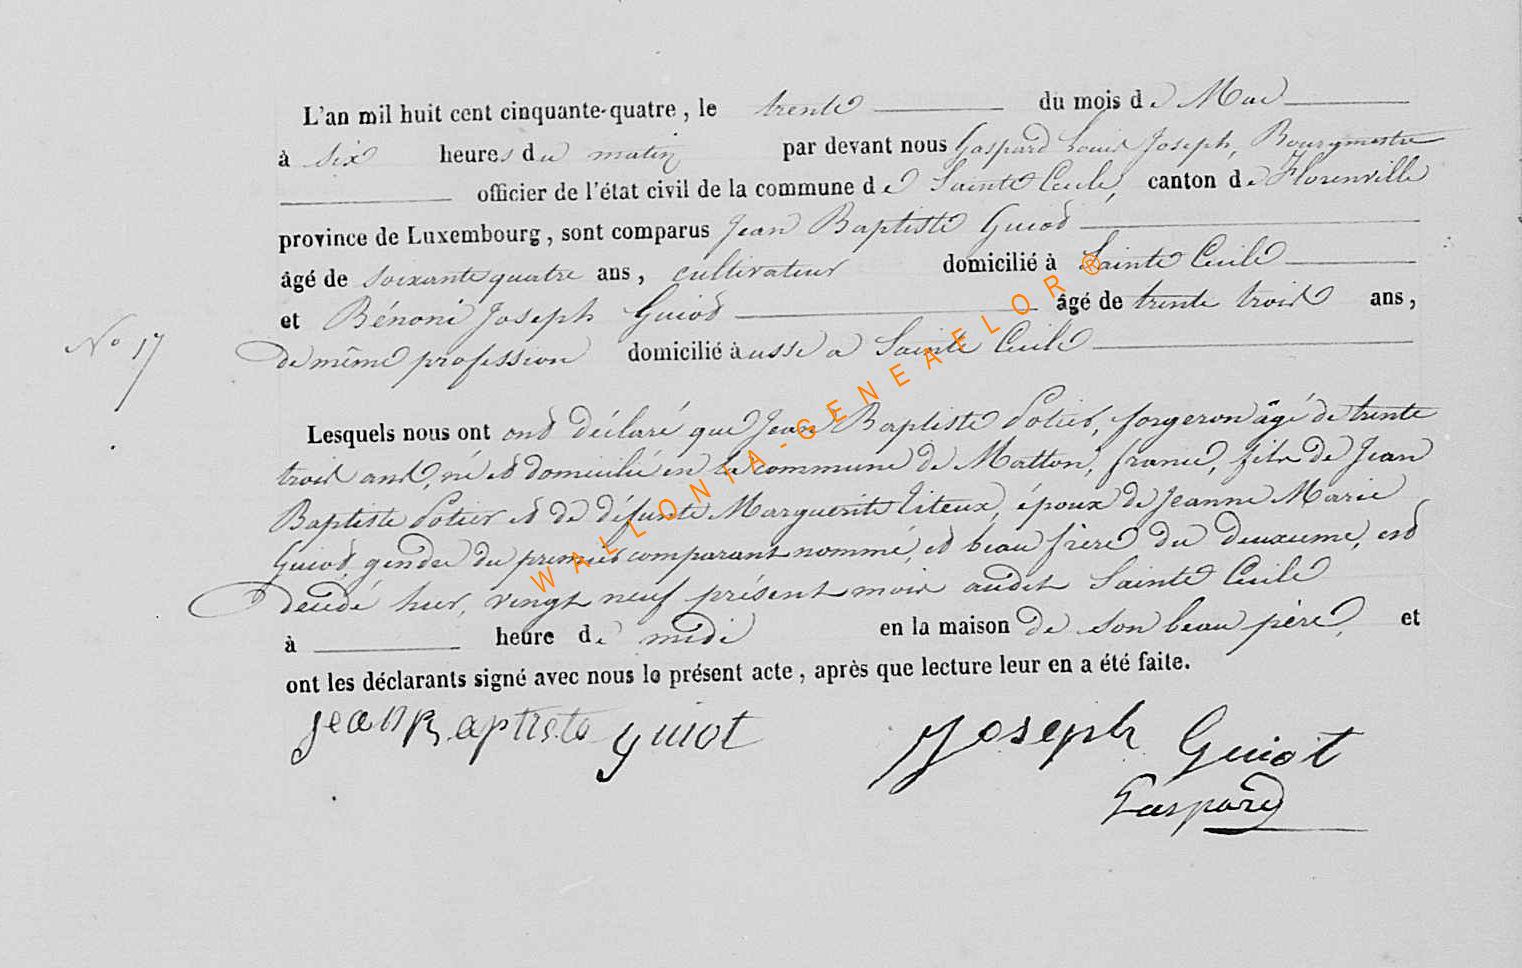 L'an mil huit cent cinquante-quatre, le trente du mois de Mai
à six heures du matin par devant nous Gaspard Louis Joseph, Bourgmestre
officier de l'état civil de la commune de Sainte Cecile, canton de Florenville
province de Luxembourg, sont comparus Jean Baptiste Guiot
âgé de soixante quatre ans, cultivateur domicilié à Sainte Cecile
et Bénoni Joseph Guiot âgé de trente trois ans,
No 17
de même profession domicilié à aussi a Sainte Cecile
Lesquels nous ont ont déclaré que Jean Baptiste Potier, forgeron âgé de trente
trois ans, né et domicilié en la commune de Matton, france, fils de Jean
Baptiste Potier et de défunte Marguerite Titeux, époux de Jeanne Marie
Guiot, gendre du premier comparant nommé, et beau frère du deuxieme, est
décédé hier, vingt neuf présent mois audit Sainte Cecile
à heure de midi en la maison de son beau père, et
ont les déclarants signé avec nous le présent acte, après que lecture leur en a été faite.
Jean Baptiste guiot Joseph Guiot
Gaspard
WALLONIA-GENEAFLOR®